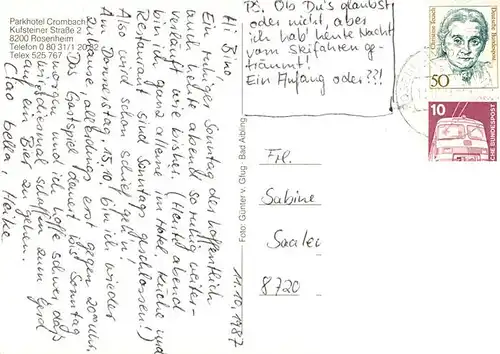 Parkhotel Crombach
Kufsteiner Straße 2
8200 Rosenheim
Telefon 0 80 31/1 20 82
Telex 525 767
11.10.1987
Hi Bino
Ein ruhiger Sonntag der hoffentlich
auch heute abend so ruhig weiter-
verläuft wie bisher. (Heut abend
bin ich ganz alleine im Hotel, Küche und
Restaurant sind Sonntags geschlossen!)
Also wird schon schief geh'n!
Am Donnerstag, 15.10! bin ich wieder
zuhause allerdings erst gegen 20 Uhr.
Das Gastspiel dauert bis Sonntag
morgen und ich hoffe schwer daß
wir's diesmal schaffen zum
auf ein Bier zu geh'n.
Ciao bella, Heike
PS. Ob Du's glaubst
oder nicht, aber
ich hab' heute Nacht
vom Skifahren ge-
träumt!
Ein Anfang oder??!
Foto: Günter v. Gfug · Bad Aibling
Christine Teusch
Deutsche Bundespost
50
10
CHE BUNDESPOST
Frl.
Sabine
Saaler
8720